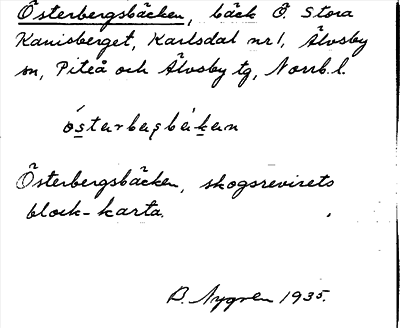 Österbergsbäcken, bäck Ö. Stora
Kanisberget, Karlsdal nr 1, Älvsby
sn, Piteå och Älvsby tg, Norrb. l.
östərbærgsbäkən
Österbergsbäcken, skogsrevirets
block-karta.
B. Nygren 1935.